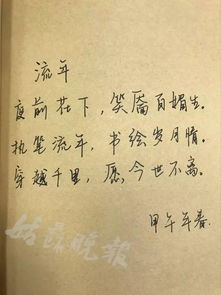 流年
夜前花下，笑靥百媚生。
执笔流年，书绘岁月情。
穿越千里，愿今世不离。
甲午年春
姑苏晚报